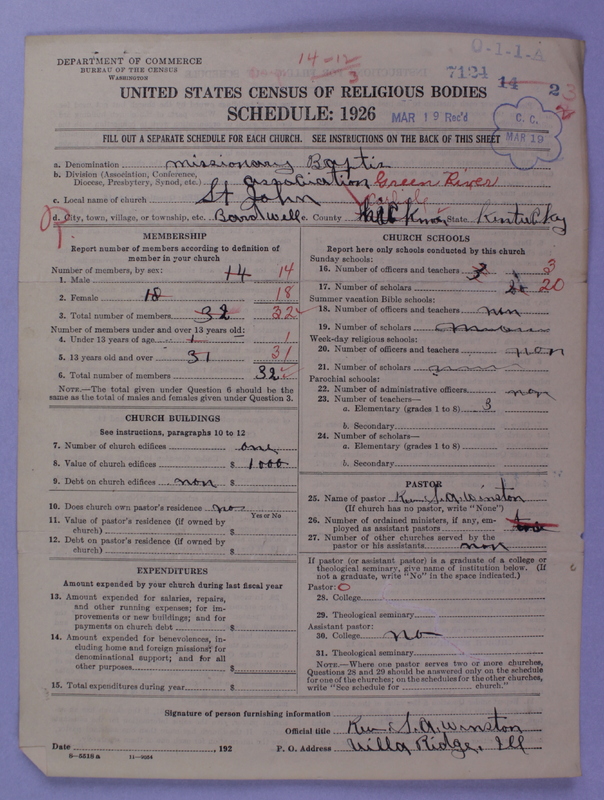 DEPARTMENT OF COMMERCE
BUREAU OF THE CENSUS
WASHINGTON
14-12
3
0-1-1-A
7124 14 2 3
UNITED STATES CENSUS OF RELIGIOUS BODIES
SCHEDULE: 1926
MAR 19 Rec'd
C. C.
MAR 19
FILL OUT A SEPARATE SCHEDULE FOR EACH CHURCH. SEE INSTRUCTIONS ON THE BACK OF THIS SHEET
a. Denomination missionary Baptis
b. Division (Association, Conference,
Diocese, Presbytery, Synod, etc.) association Green River
c. Local name of church St John
Carlisle
d. City, town, village, or township, etc. Bardwell e. County State Kintuckay
MEMBERSHIP
Report number of members according to definition of
member in your church
Number of members, by sex:
1. Male 14 14
2. Female 18 18
3. Total number of members 32 32
Number of members under and over 13 years old:
4. Under 13 years of age 1 1
5. 13 years old and over 31 31
6. Total number of members 32
NOTE.—The total given under Question 6 should be
the same as the total of males and females given under Question 3.
CHURCH BUILDINGS
See instructions, paragraphs 10 to 12
7. Number of church edifices one
8. Value of church edifices $ 1000
9. Debt on church edifices non $
10. Does church own pastor's residence no
Yes or No
11. Value of pastor's residence (if owned by
church) $
12. Debt on pastor's residence (if owned by
church) $
EXPENDITURES
Amount expended by your church during last fiscal year
13. Amount expended for salaries, repairs,
and other running expenses; for im-
provements or new buildings; and for
payments on church debt $
14. Amount expended for benevolences, in-
cluding home and foreign missions; for
denominational support; and for all
other purposes $
15. Total expenditures during year $
CHURCH SCHOOLS
Report here only schools conducted by this church
Sunday schools:
16. Number of officers and teachers 3 3
17. Number of scholars 20
Summer vacation Bible schools:
18. Number of officers and teachers non
19. Number of scholars
Week-day religious schools:
20. Number of officers and teachers non
21. Number of scholars
Parochial schools:
22. Number of administrative officers non
23. Number of teachers—
a. Elementary (grades 1 to 8) 3
b. Secondary
24. Number of scholars—
a. Elementary (grades 1 to 8)
b. Secondary
PASTOR
25. Name of pastor Rev. S. A. Winston
(If church has no pastor, write "None")
26. Number of ordained ministers, if any, em-
ployed as assistant pastors
27. Number of other churches served by the
pastor or his assistants non
If pastor (or assistant pastor) is a graduate of a college or
theological seminary, give name of institution below. (If
not a graduate, write "No" in the space indicated.)
Pastor: O
28. College
29. Theological seminary
Assistant pastor:
30. College no
31. Theological seminary
NOTE.—Where one pastor serves two or more churches,
Questions 28 and 29 should be answered only on the schedule
for one of the churches; on the schedules for the other churches,
write "See schedule for church."
Signature of person furnishing information
Official title Rev. S. A. Winston
Date , 192 P. O. Address Villa Ridge, Ill
8—5518 a 11—9034